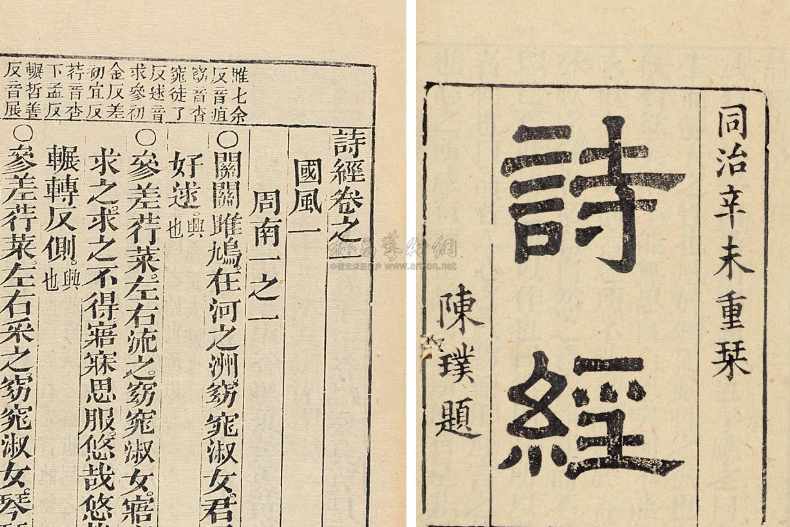 同治辛未重栞
詩經
陳璞題
雎七余
反音疽
窈音杳
窕徒了
反逑音
求參初
金反差
初宜反
荇音杏
下孟反
輾哲善
反音展
詩經卷之一
國風一
周南一之一
○關關雎鳩。在河之洲。窈窕淑女。君
好逑。興也
○參差荇菜。左右流之。窈窕淑女。寤
求之。求之不得。寤寐思服。悠哉悠
輾轉反側。興也
○參差荇菜。左右采之。窈窕淑女。琴
www.artron.net